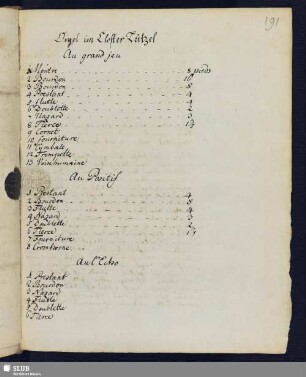 191
Orgel im Closter Lützel
Au grand jeu
1 Montre 8 pieds
2 Bourdon 16
3 Bourdon 8
4 Prestant 4
5 Flutte 4
6 Doublette 2
7 Nazard 3
8 Tierce
9 Cornet
10 Fourniture
11 Cymbale
12 Trompette
13 Voix humaine
Au Positif
1 Prestant 4
2 Bourdon 8
3 Flutte 4
4 Nazard 3
5 Doublette 2
6 Tierce
7 Fourniture
8 Cromhorne
Au l'Echo
1 Prestant
2 Bourdon
3 Nazard
4 Flutte
5 Doublette
6 Tierce
SLUB